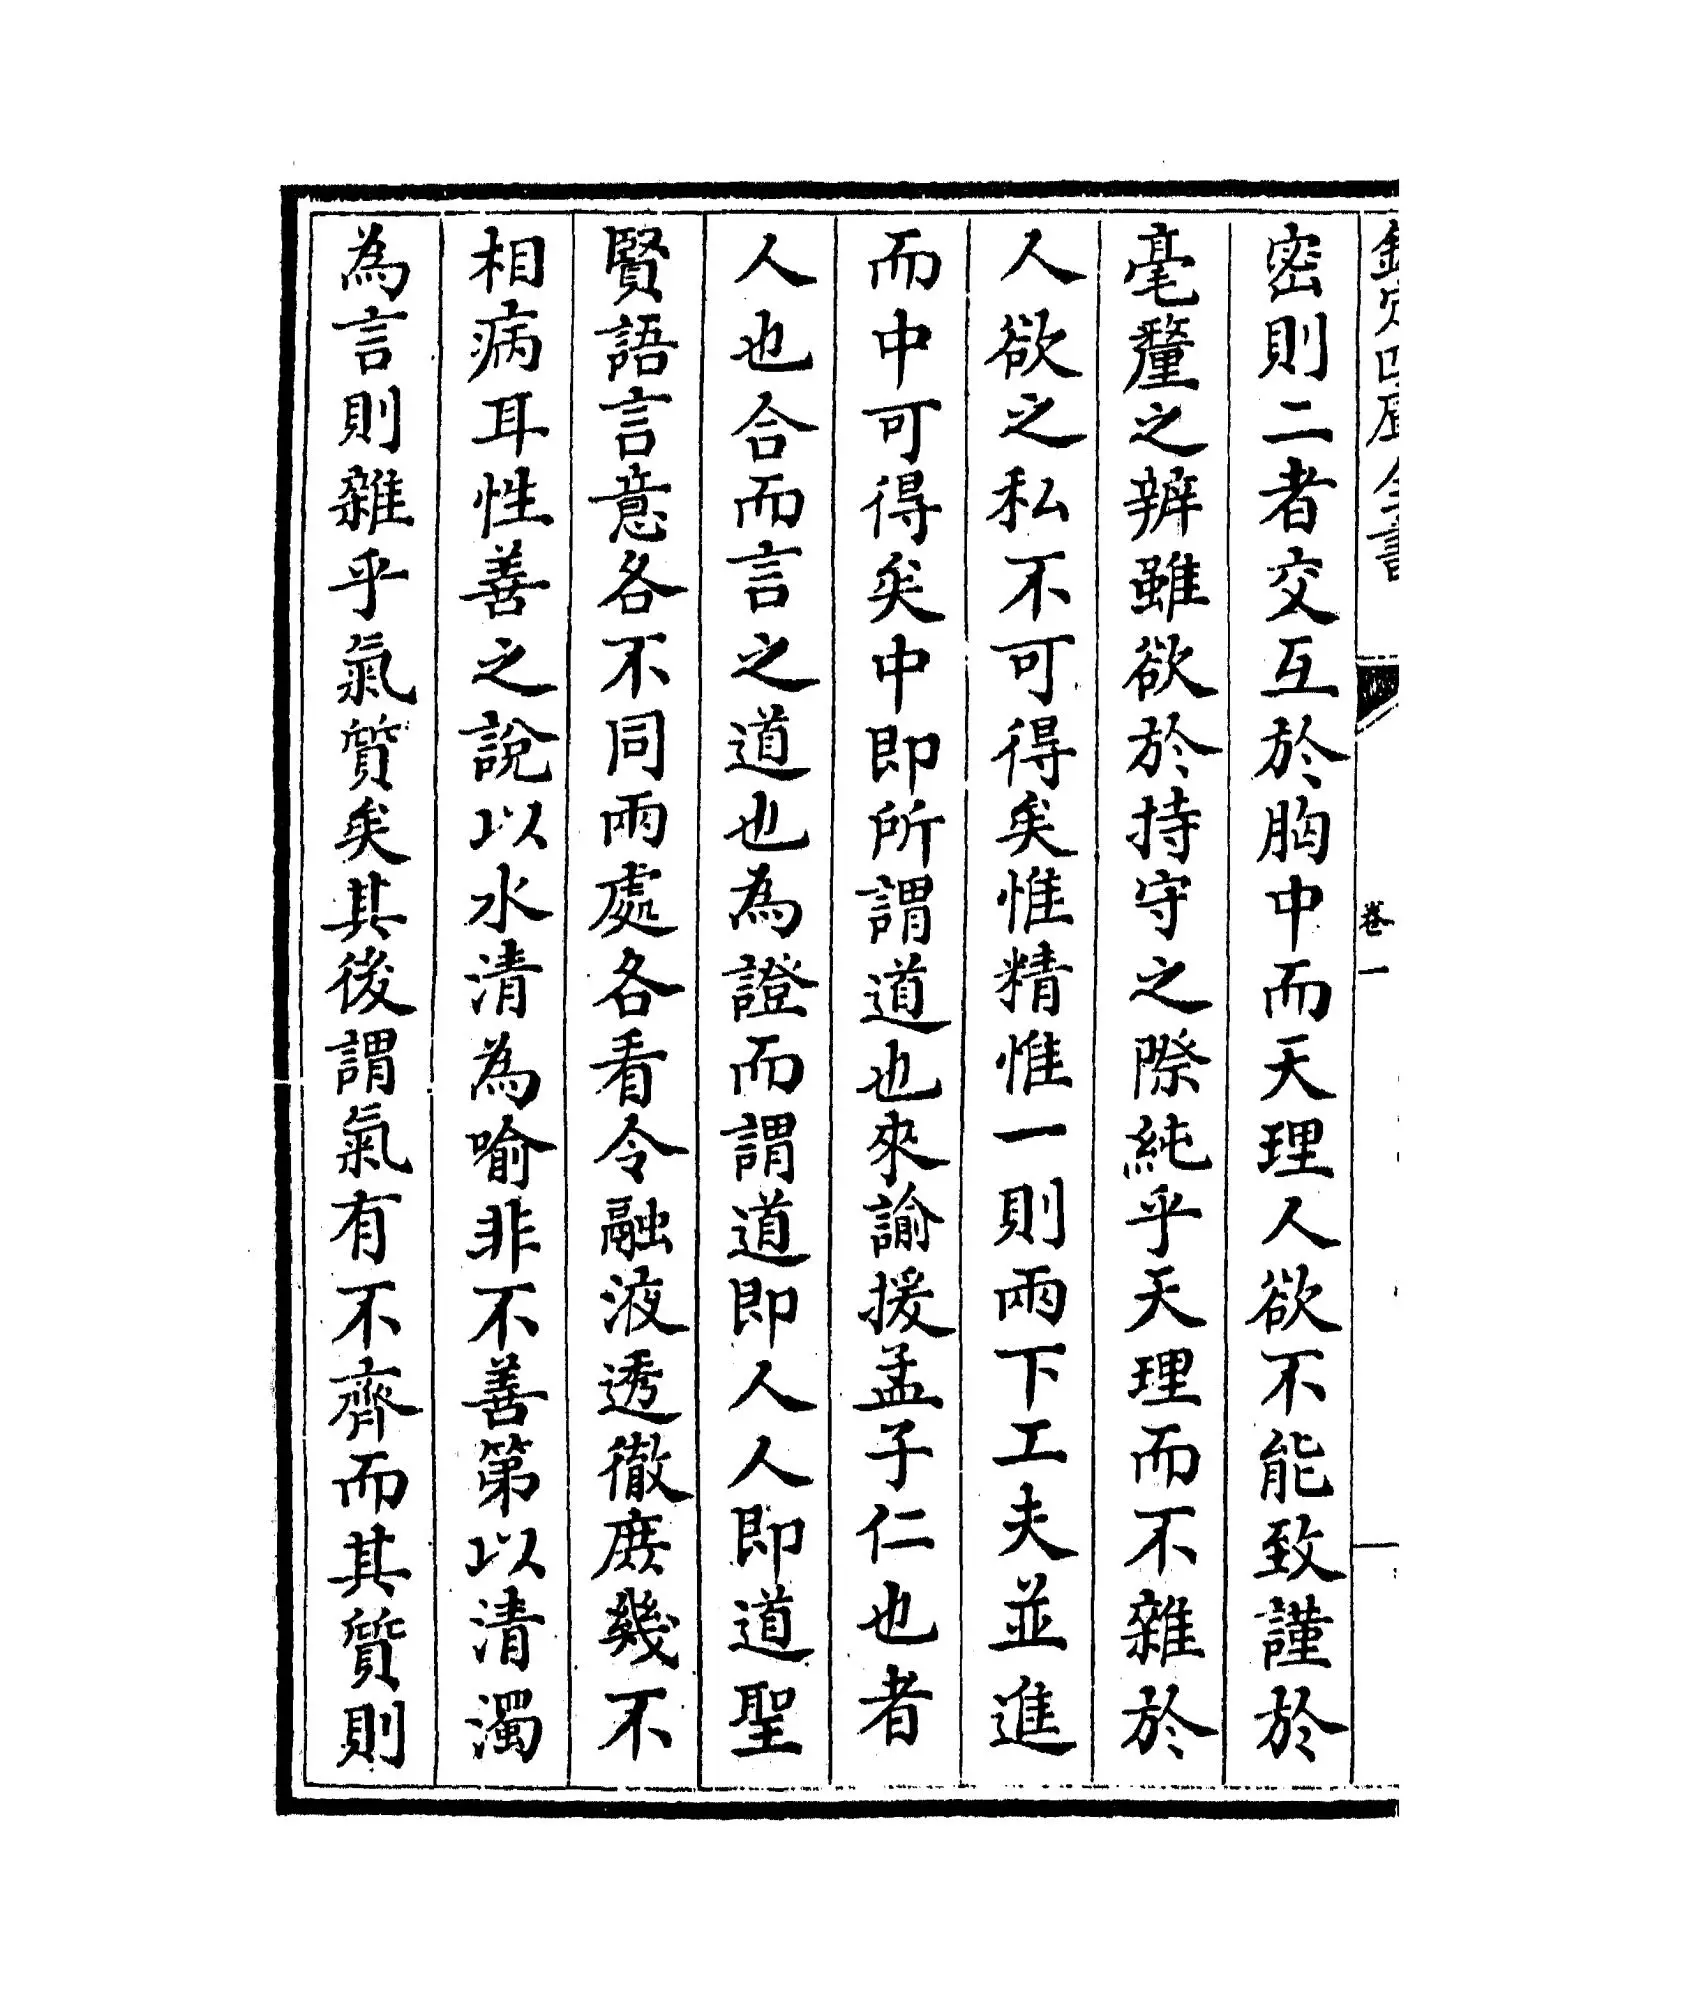 欽定四庫全書
卷一
密則二者交互於胸中而天理人欲不能致謹於
毫釐之辨雖欲於持守之際純乎天理而不雜於
人欲之私不可得矣惟精惟一則兩下工夫並進
而中可得矣中即所謂道也來諭援孟子仁也者
人也合而言之道也為證而謂道即人人即道聖
賢語言意各不同兩處各看令融液透徹庶幾不
相病耳性善之說以水清為喻非不善第以清濁
為言則雜乎氣質矣其後謂氣有不齊而其質則